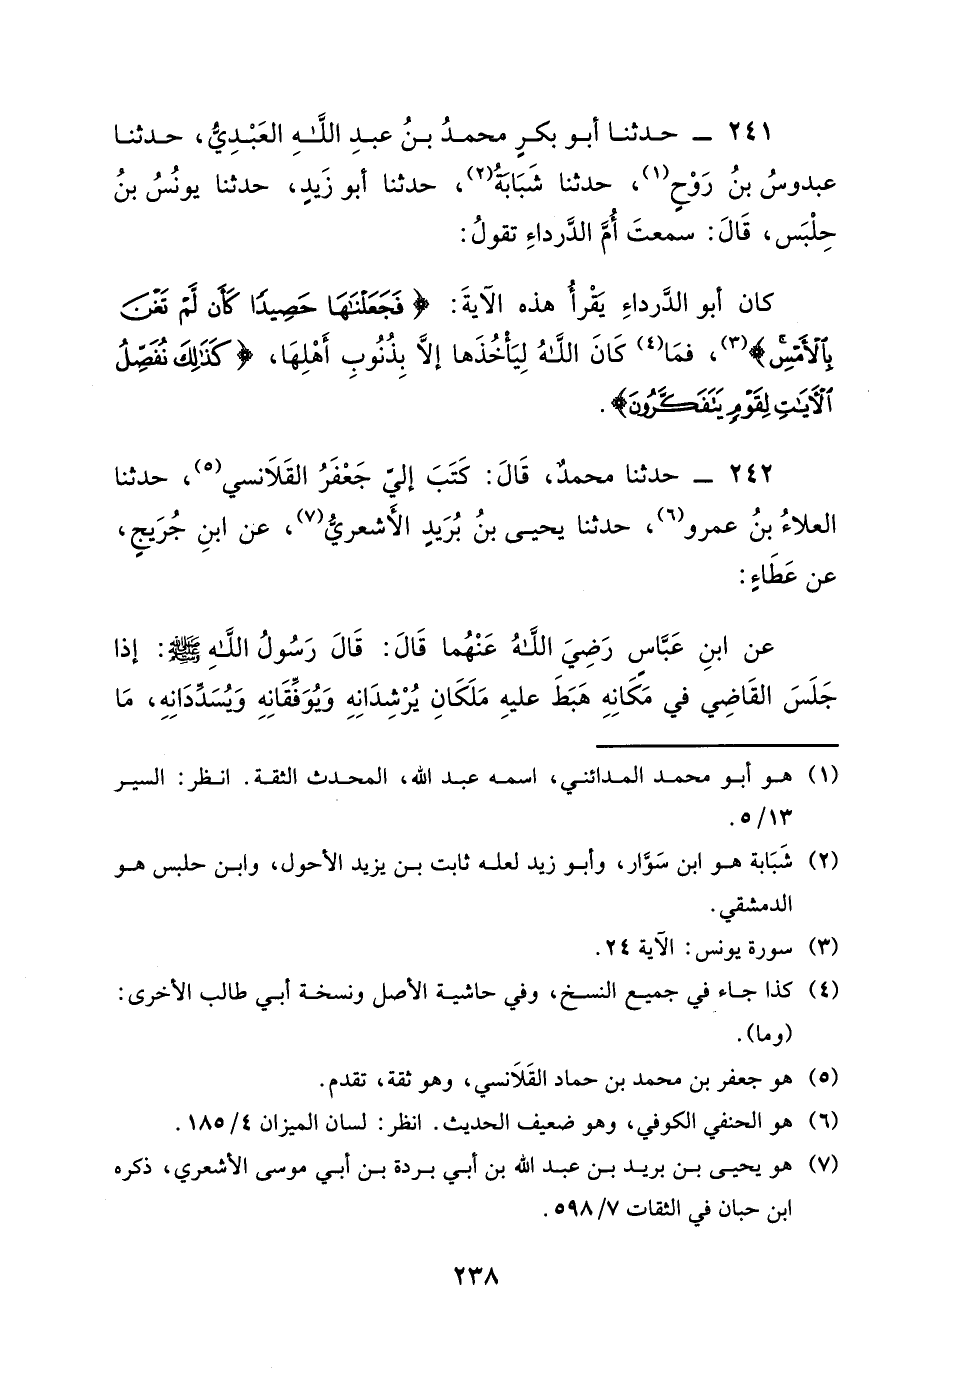 ٢٤١ ـ حدثنا أبو بكرٍ محمدُ بنُ عبدِ اللَّهِ العَبْدِيُّ، حدثنا
عبدوسُ بنُ رَوْحٍ(١)، حدثنا شَبَابَةُ(٢)، حدثنا أبو زَيدٍ، حدثنا يونُسُ بنُ
حِلْبَس، قَالَ: سمعتَ أُمَّ الدَّرداءِ تقولُ:
كان أبو الدَّرداءِ يَقْرأُ هذه الآيةَ: ﴿فَجَعَلْنَٰهَا حَصِيدًا كَأَن لَّمْ تَغْنَ
بِٱلْأَمْسِ﴾(٣)، فمَا(٤) كَانَ اللَّهُ لِيَأْخُذَها إلاَّ بِذُنُوبِ أَهْلِهَا، ﴿كَذَٰلِكَ نُفَصِّلُ
ٱلْآيَٰتِ لِقَوْمٍ يَتَفَكَّرُونَ﴾.
٢٤٢ ـ حدثنا محمدٌ، قَالَ: كَتَبَ إليّ جَعْفَرُ القَلَانسي(٥)، حدثنا
العلاءُ بنُ عمرو(٦)، حدثنا يحيى بنُ بُرَيدٍ الأَشعريُّ(٧)، عن ابنِ جُرَيجٍ،
عن عَطَاءٍ:
عن ابنِ عَبَّاسٍ رَضِيَ اللَّهُ عَنْهُما قَالَ: قَالَ رَسُولُ اللَّهِ ﷺ: إذا
جَلَسَ القَاضِي في مَكَانِهِ هَبَطَ عليهِ مَلَكَانِ يُرْشِدَانِهِ وَيُوَفِّقَانِهِ وَيُسَدِّدَانِهِ، مَا
(١) هو أبو محمد المدائني، اسمه عبد الله، المحدث الثقة. انظر: السير
٥/١٣.
(٢) شَبَابة هو ابن سَوَّار، وأبو زيد لعله ثابت بن يزيد الأحول، وابن حلبس هو
الدمشقي.
(٣) سورة يونس: الآية ٢٤.
(٤) كذا جاء في جميع النسخ، وفي حاشية الأصل ونسخة أبي طالب الأخرى:
(وما).
(٥) هو جعفر بن محمد بن حماد القَلَانسي، وهو ثقة، تقدم.
(٦) هو الحنفي الكوفي، وهو ضعيف الحديث. انظر: لسان الميزان ١٨٥/٤.
(٧) هو يحيى بن بريد بن عبد الله بن أبي بردة بن أبي موسى الأشعري، ذكره
ابن حبان في الثقات ٥٩٨/٧.
٢٣٨